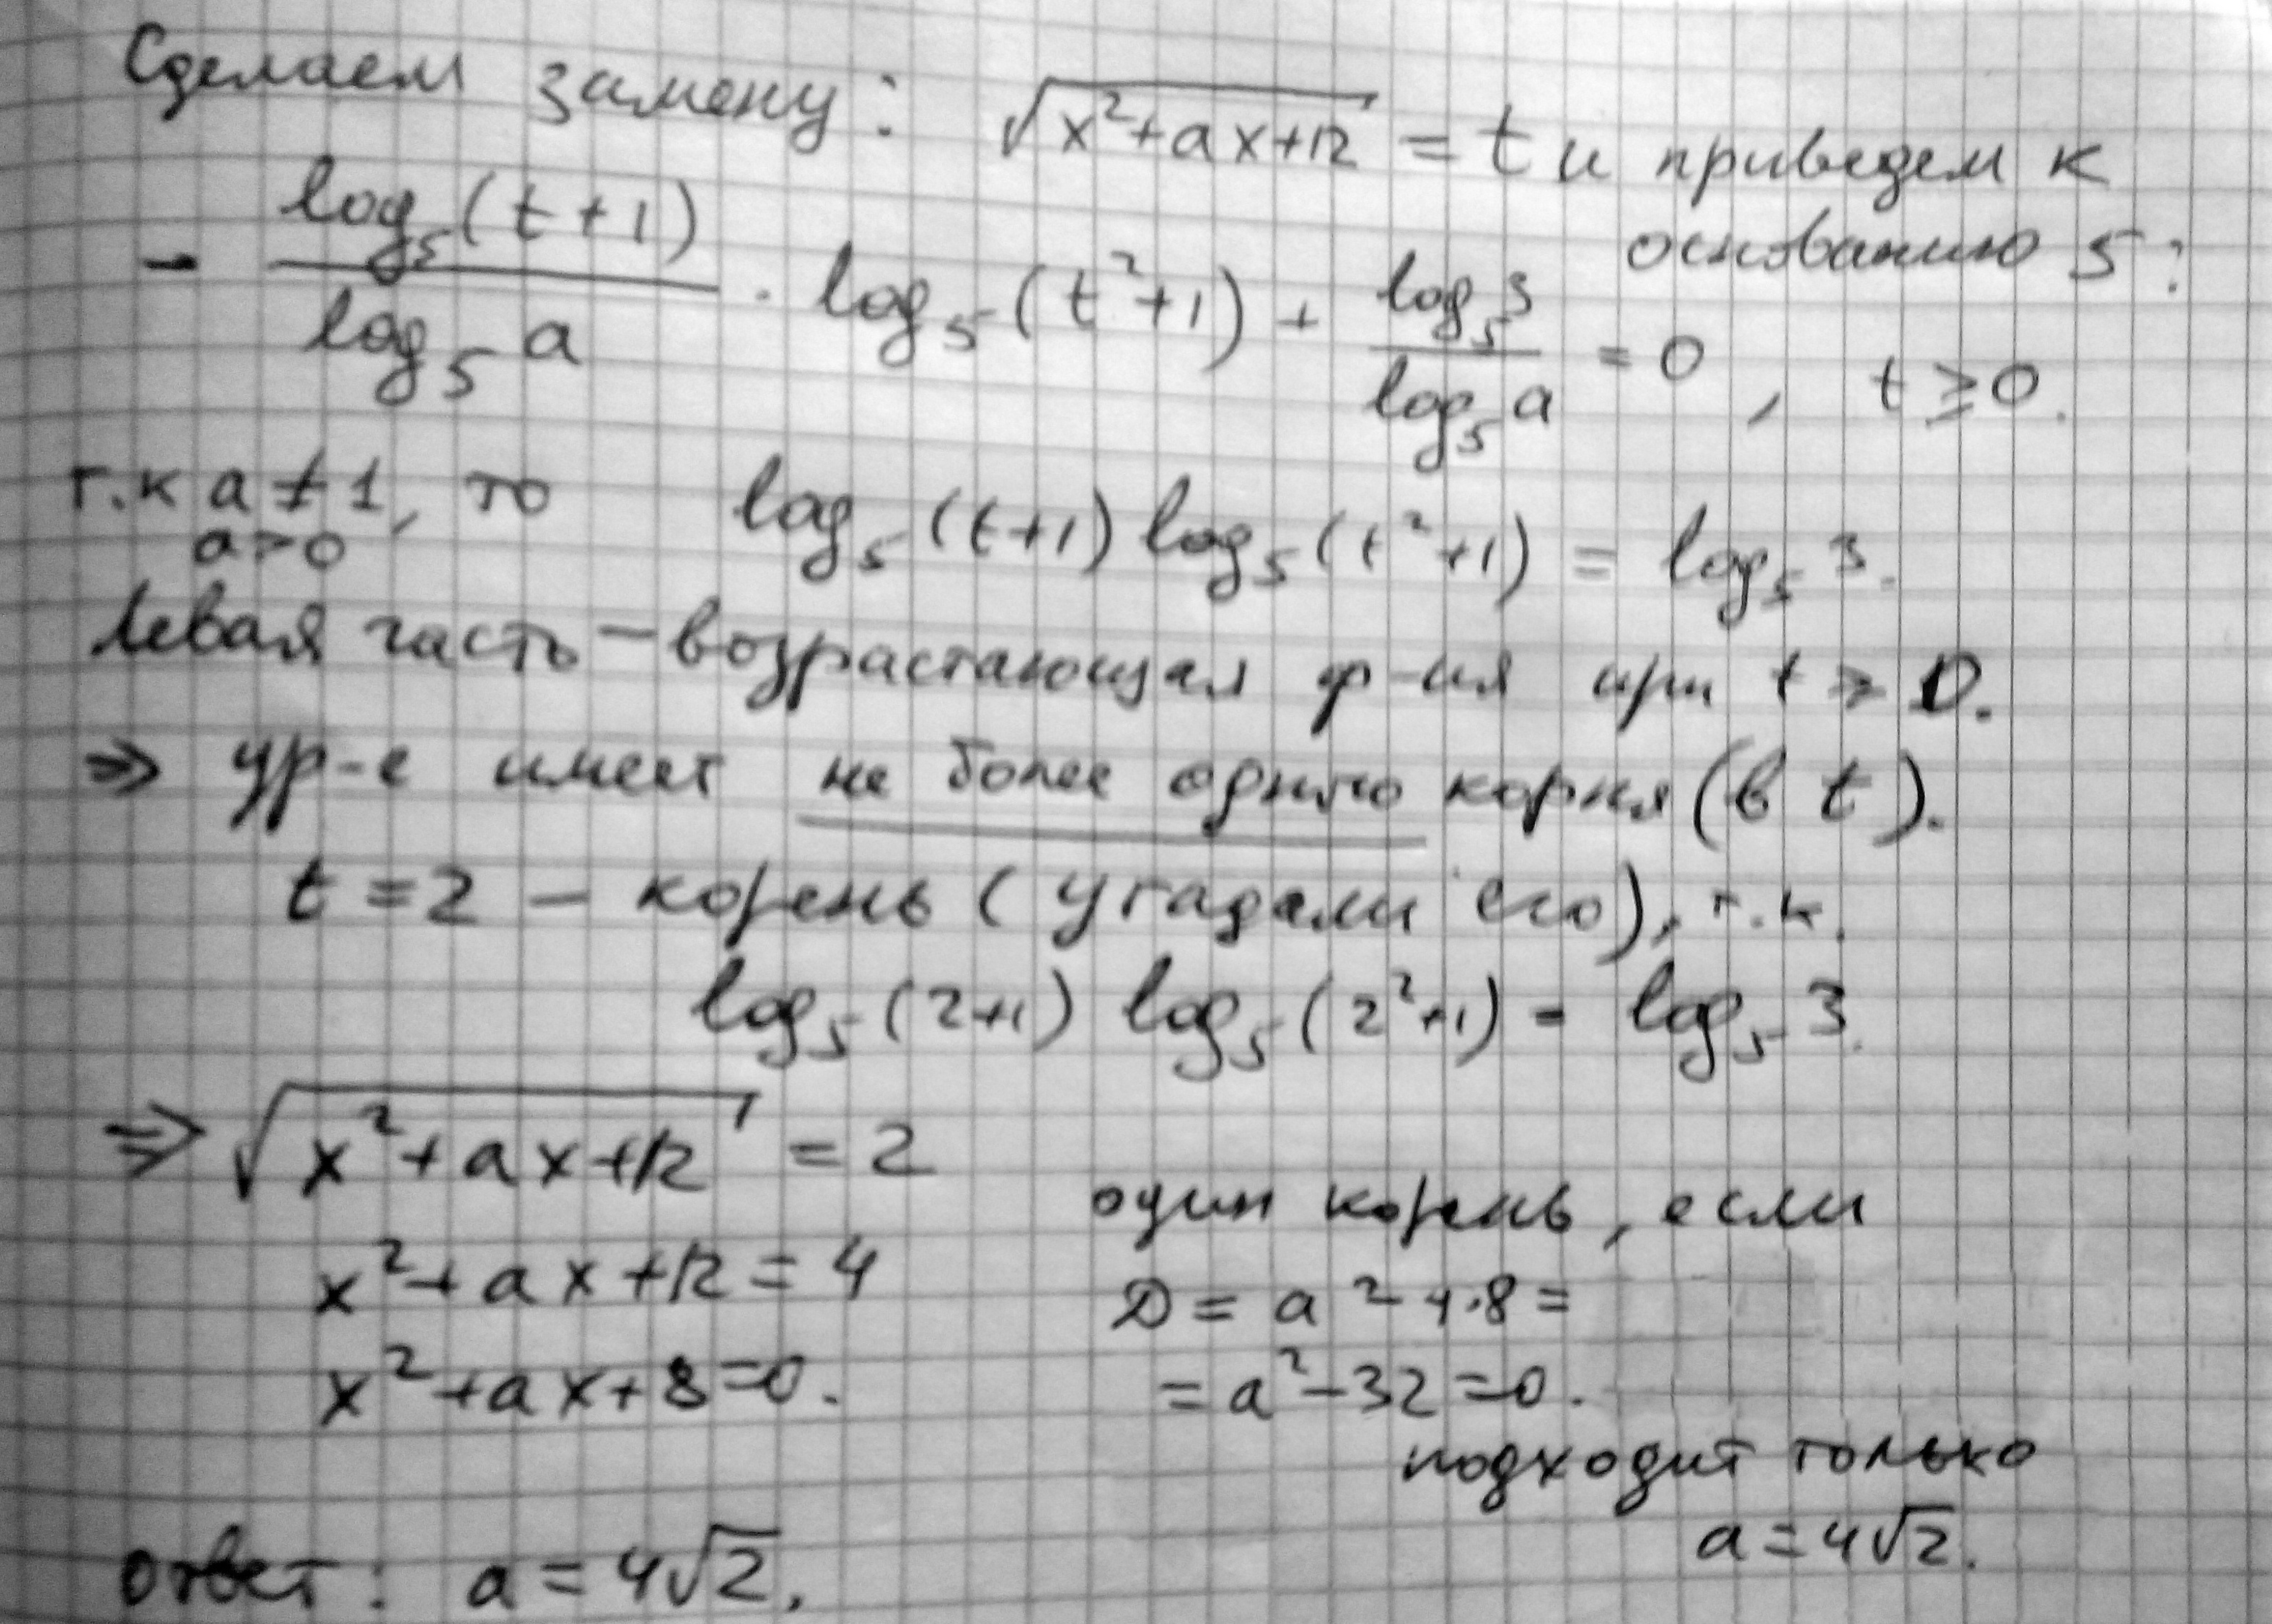 Сделаем замену: √(x²+ax+12) = t и приведем к
основанию 5:
- log₅(t+1)/log₅a · log₅(t²+1) + log₅3/log₅a = 0, t ≥ 0.
т.к a≠1, то log₅(t+1) log₅(t²+1) = log₅3.
a>0
Левая часть – возрастающая ф-ия при t ≥ 0.
⇒ ур-е имеет не более одного корня (в t).
t = 2 – корень (угадали его), т.к.
log₅(2+1) log₅(2²+1) = log₅3.
⇒ √(x²+ax+12) = 2
x²+ax+12 = 4
x²+ax+8=0.
один корень, если
D = a²-4·8=
= a²-32=0.
подходит только
a=4√2.
Ответ: a=4√2.